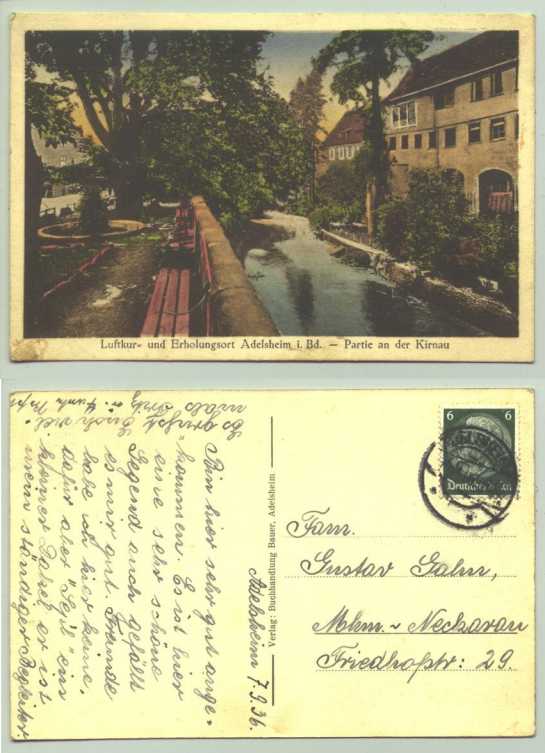 Luftkur- und Erholungsort Adelsheim i. Bd. — Partie an der Kirnau
6 6
Deutsches Reich
Verlag: Buchhandlung Bauer, Adelsheim
Adelsheim 7.9.36.
Bin hier sehr gut ange-
kommen. Es ist hier
eine sehr schöne
Gegend auch gefällt
es mir gut. Freunde
habe ich hier keine.
dafür aber "Seppl" ein
kleiner Dackel er ist
mein ständiger Begleiter.
Es grüßt Euch viel-
mals Fritz u.
Fam.
Gustav Galm,
Mhm.-Neckarau
Friedhofstr: 29.